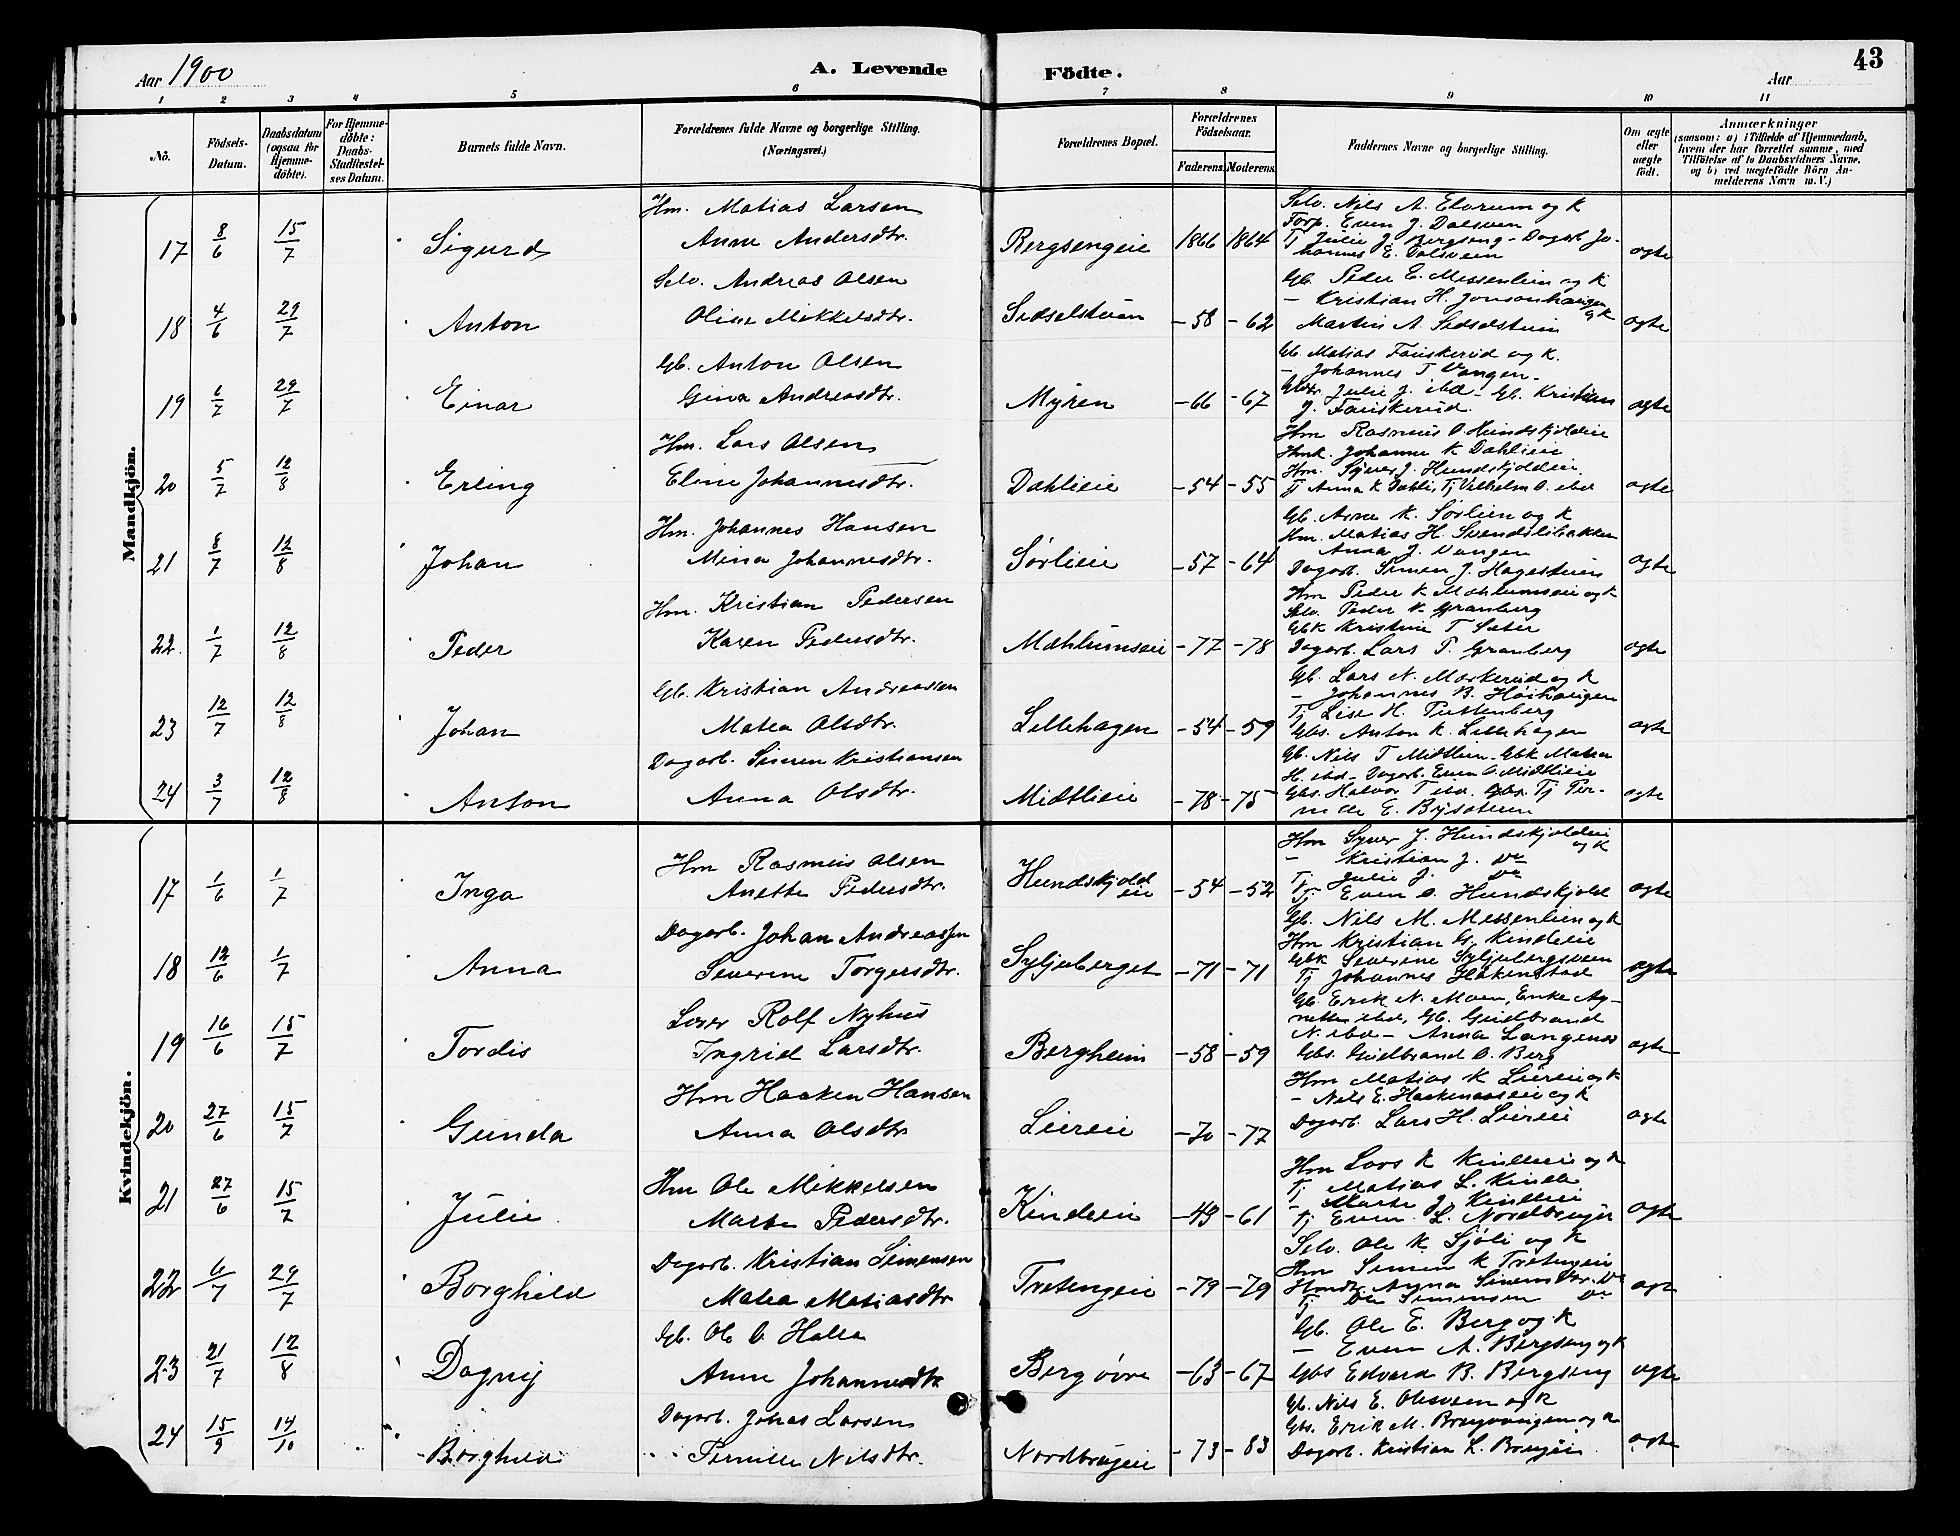 43
Aar 1900
A. Levende Födte.
Aar
1 2 3 4 5 6 7 8 9 10 11
Nö.
Födsels-Datum.
Daabsdatum (ogsaa for Hjemme-döbte).
For Hjemme-döbte: Daabs-Stadfæstel-ses Datum.
Barnets fulde Navn.
Forældrenes fulde Navne og borgerlige Stilling. (Næringsvei.)
Forældrenes Bopæl.
Forældrenes Födselsaar.
Faderens. Moderens.
Faddernes Navne og borgerlige Stilling.
Om ægte eller uægte födt.
Anmærkninger (saasom: a) i Tilfælde af Hjemmedaab, hvem der har forrettet samme, med Tilföielse af to Daabsvidners Navne, og b) ved uægtefödte Börn An-melderens Navn m. V.)
Mandkjön.
17 8/6 15/7 Sigurd
Hm. Matias Larsen
Anne Andersdtr.
Bergsengeie 1866 1864
Selv. Nils A. Elvrum og K
Forp. Even J. Dalsveen
Tj Julie J. Bergseng - Dagarb Jo-
hannes E. Dalsveen
ægte
18 4/6 29/7 Anton
Selv. Andreas Olsen
Oline Mikkelsdtr.
Sidselstuen -58 -62
Gb. Peder E. Messenlien og K
- Kristian H. Jonsonhaugen og K
Martin A. Sidselstuen
ægte
19 6/7 29/7 Einar
Gb. Anton Olsen
Gina Andreasdtr.
Myren -66 -67
Gb. Matias Fauskerud og K.
- Johannes T Vangen -
Gbdtr Julie J. ibd - Gb. Kristian
J. Fauskerud.
ægte
20 5/7 12/8 Erling
Hm. Lars Olsen
Eline Johannesdtr.
Dahlieie -54 -55
Hm Rasmus O. Hundskjoldeie
Hmk. Johanne K Dahlieie
Hm. Syver J. Hundskjoldeie
Tj Anna K Dahli, Tj Vilhelm O. ibd
ægte
21 8/7 12/8 Johan
Hm. Johannes Hansen
Mina Johannesdtr.
Sørlieie -57 -64
Gb. Arne K. Sørlien og K
Hm. Matias H. Svendslibakken
Anna J. Vangen
Dagarb. Simen J. Hagestuen
ægte
22. 1/7 12/8 Peder
Hm. Kristian Pedersen
Karen Pedersdtr.
Mæhlumseie -77 -78
Hm Peder K Mæhlumseie og K
Selv. Peder K. Granberg
Gbk Kristine T Sæter
Dagarb. Lars P. Granberg
ægte
23 12/7 12/8 Johan
Gb. Kristian Andreassen
Matea Olsdtr.
Lillehagen -54 -59
Gb. Lars N. Maskerud og K
- Johannes B. Høihaugen
Tj Lise H. Puttenberg
Gbs. Anton K. Lillehagen
ægte
24 3/7 12/8 Anton
Dagarb. Simen Kristiansen
Anna Olsdtr.
Midtlieie -78 -75
Gb. Nils T Midtlien - Gbk Matea
H. ibd - Dagarb. Even O. Midtlieie
Gbs. Halvor T ibd. Gbs. Tj
E. Bysæteren
ægte
Kvindekjön.
17 1/6 1/7 Inga
Hm Rasmus Olsen
Anette Pedersdtr.
Hundskjold eie -54 -52
Hm Syver J. Hundskjoldeie og K
- Kristian J. Do
Tj Julie J. Do
Tj Even O. Hundskjold
ægte
18 12/6 1/7 Anna
Dagarb. Johan Andreassen
Severine Torgersdtr.
Syljuberget -71 -71
Gb. Nils M. Messenlien og K
Hm Kristian G. Kindeie
Gbk Severine Syljubergsveen
Tj Johannes Haakenstad
ægte
19 16/6 15/7 Tordis
Lærer Rolf Nyhus
Ingrid Larsdtr.
Bergheim -58 -59
Gb. Erik N. Moen, Enke Ag-
nette ibd, Gb. Gudbrand
N. ibd - Anna Langenæs
Gbs. Gudbrand O. Berg
ægte
20 27/6 15/7 Gunda
Hm Haaken Hansen
Anna Olsdtr
Liereie -70 -77
Hm Matias K Liereie og K
- Nils E. Haakenaaseie og K
Dagarb. Lars H. Liereie
ægte
21 27/6 15/7 Julie
Hm Ole Mikkelsen
Marte Pedersdtr.
Kindeie -49 -61
Hm Lars K Kindeie og K
Tj Matias L. Kinde
- Marte J. Kindeie
Tj Even L. Nordbrujie
ægte
22 6/7 29/7 Borghild
Dagarb. Kristian Simensen
Matea Matiasdtr
Tretengeie -79 -79
Selv. Ole K Sjøli og K
Hm Simen K Tretengeie
Hmdtr Agna Simensdtr. Do
Tj Ole Simensen Do
ægte
23 21/7 12/8 Dagny
Gb. Ole O. Halla
Anne Johannesdtr
Berg øvre -63 -67
Gb. Ole E. Berg og K
- Even A. Bergseng og K
Gbs Edvard B. Bergseng
ægte
24 15/9 14/10 Borghild
Dagarb. Johas Larsen
Pernille Nilsdtr.
Nordbrujeie -73 -83
Gb. Nils E. Olsveen og K
Gbs. Erik M. Bruvangen og K
Dagarb. Kristian L. Brujeie
ægte